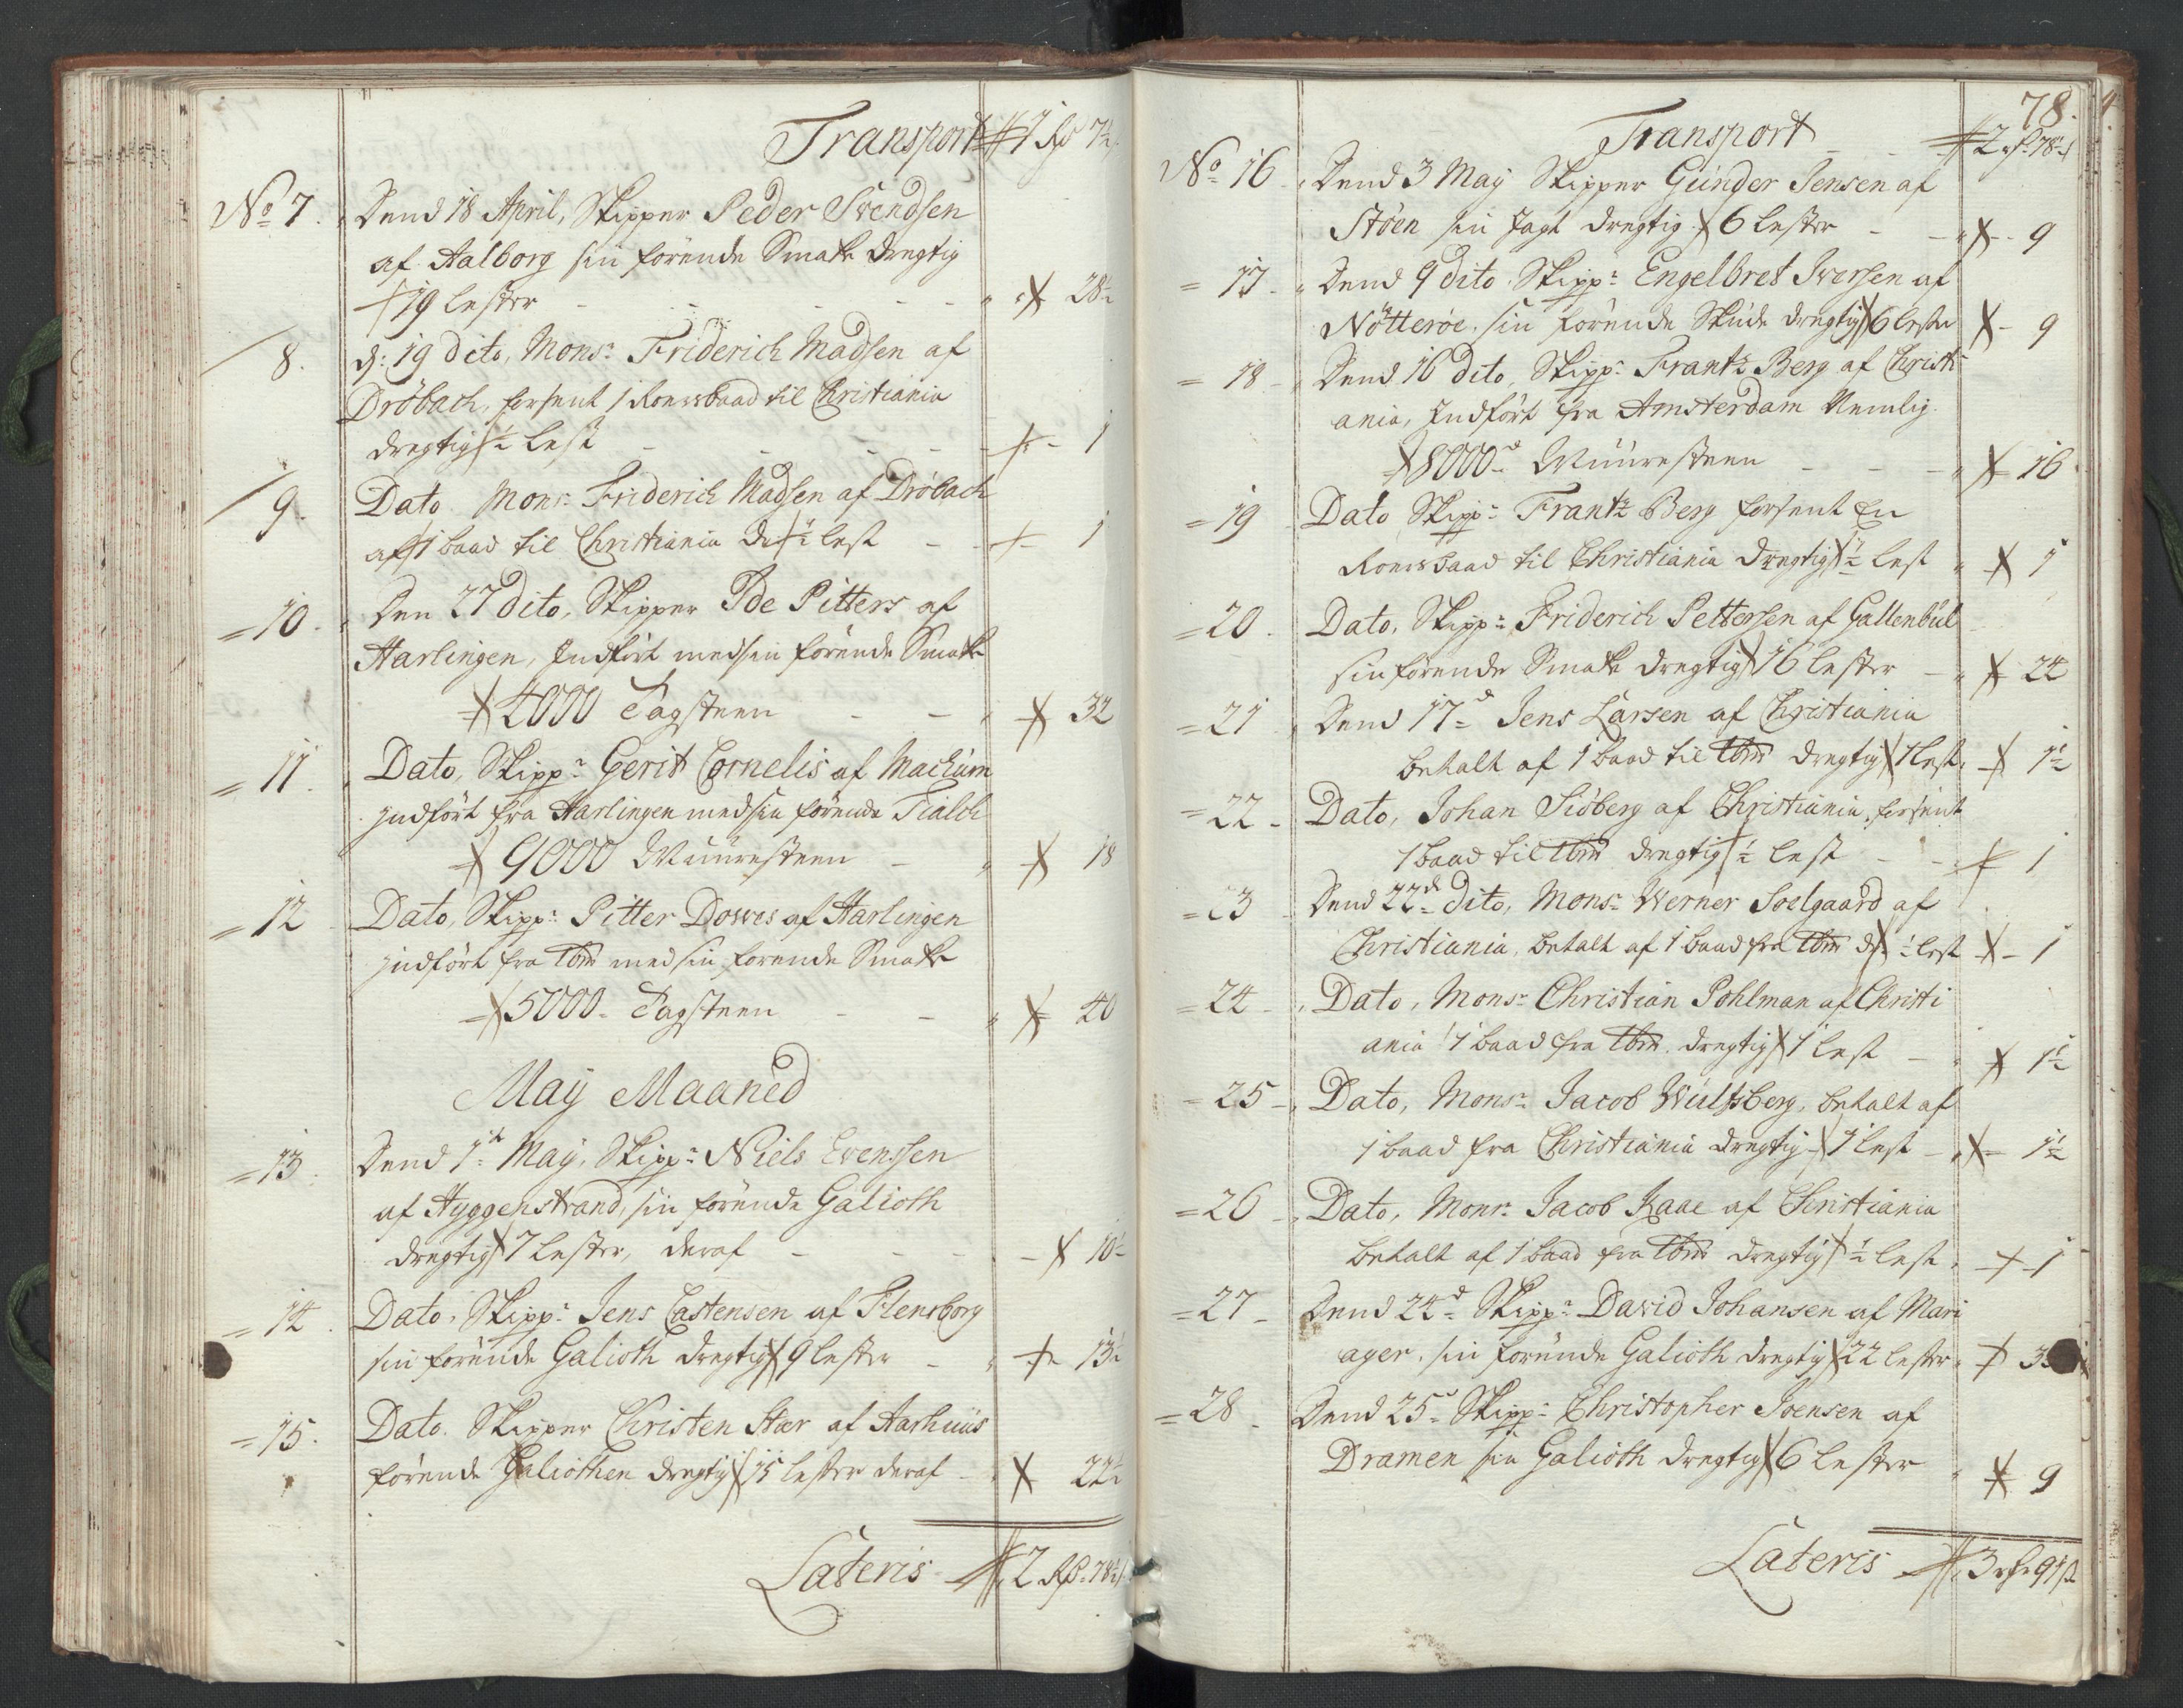 Transport 1 Rd 7½
No 7. Dend 18 April, Skipper Peder Svendsen
af Aalborg sin förende Smake dregtig
19 lester - 28½
8. d: 19 dito, Monsr Friderich Madsen af
Dröbach, forsent 1 Roersbaad til Christiania
dregtig ½ lest - 1
9. Dato Monsr Friderich Madsen af Dröbach
af 1 baad til Christiania dr ½ lest - 1
10. Den 27 dito, Skipper Ide Pitters af
Harlingen, Indfört med sin förende Smake
4000 Tagsteen - 32
11. Dato, Skippr Gerit Cornelis af Machum
indfört fra Harlingen med sin förende Tialck
9000 Muuresteen - 18
12 Dato, Skippr Pitter Dowes af Harlingen
indfört fra ibm med sin förende Smake
5000 Tagsteen - 40
May Maaned
13. Dend 1te May, Skippr Niels Evensen
af Hyggenstrand, sin förende Galioth
dregtig 7 lester, deraf - 10½
14. Dato, Skippr Jens Castensen af Flensborg
sin förende Galioth dregtig 9 lester - 13½
15. Dato. Skipper Christen Stær af Aarhuus
förende Galiothen dregtig 15 lester deraf - 22½
Lateris 2 Rd 78½
78.
Transport 2 rd 78½
No 16 Dend 3 May Skipper Gunder Jensen af
Stöen sin Jagt dregtig 6 lester - 9
17. Dend 9 dito Skippr Engelbret Iversen af
Nötteröe, sin förende Skude dregtig 6 lester - 9
18 Dend 16 dito, Skippr Frantz Berg af Christi
ania, Indfört fra Amsterdam Nemlig
8000d Muuresteen - 16
19 Dato Skippr Frantz Berg forsent En
Roersbaad til Christiania dregtig ½ lest 1
20. Dato, Skippr Friderich Pettersen af Gallenbul
sin förende Smake dregtig 16 lester - 24
21 Dend 17d Jens Larsen af Christiania
betalt af 1 baad til ibm dregtig 1 lest 1½
22 Dato, Johan Siöberg af Christiania, forsent
1 baad til ibm dregtig ½ lest - 1
23 Dend 22d dito, Monsr Werner Soelgaard af
Christiania, betalt af 1 baad fra ibm dr ½ lest - 1
24 Dato, Monsr Christian Pohlman af Christi
ania 1 baad fra ibm dregtig 1 lest - 1½
25 Dato, Monsr Jacob Wulfsberg, betalt af
1 baad fra Christiania dregtig 1 lest - 1½
26 Dato, Monsr Jacob Kaae af Christiania
betalt af 1 baad fra ibm dregtig ½ lest - 1
27 Dend 24d Skippr David Johansen af Mari
ager, sin förende Galioth dregtig 22 lester
28 Dend 25d Skippr Christopher Joensen af
Dramen sin Galioth dregtig 6 lester 9
Lateris 3 rd 91 s